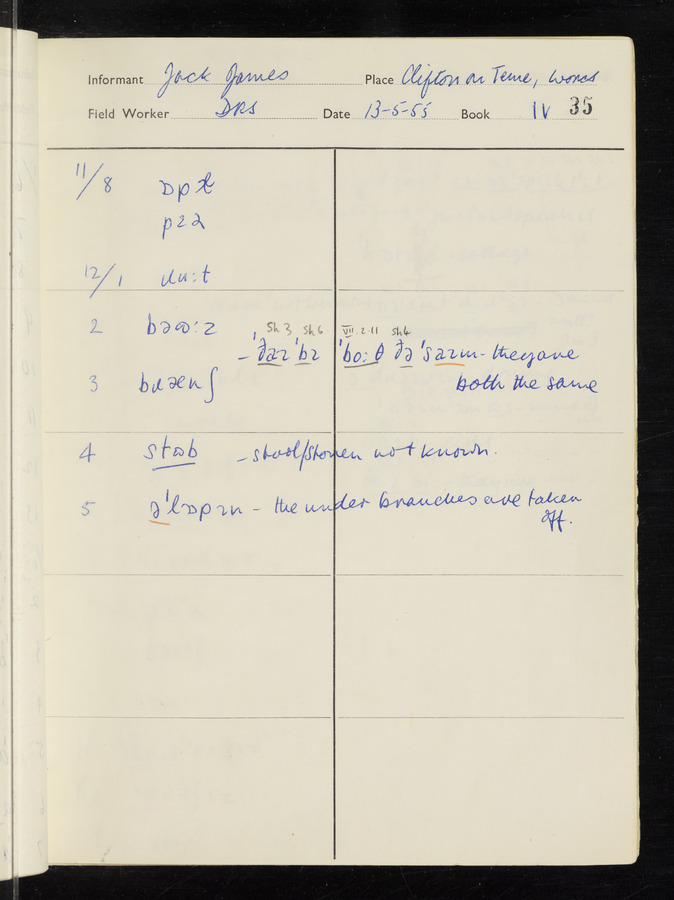 Informant Jack James Place Clifton on Teme, Worcs
Field Worker DRS Date 13-5-55 Book IV 35
11/8 ɒpɫ
12/1 ɹu:t
2 bəω:z
Sh.3 Sh.6 VII.2.11 Sh4
- ˈðaɪ ˈbɪ ˈbo:θ ðə ˈsaɪm - they are
3 bɹænʃ both the same
4 stωb - stool/stoven not known.
5 əˈlɒpɪn - the under branches are taken
off.